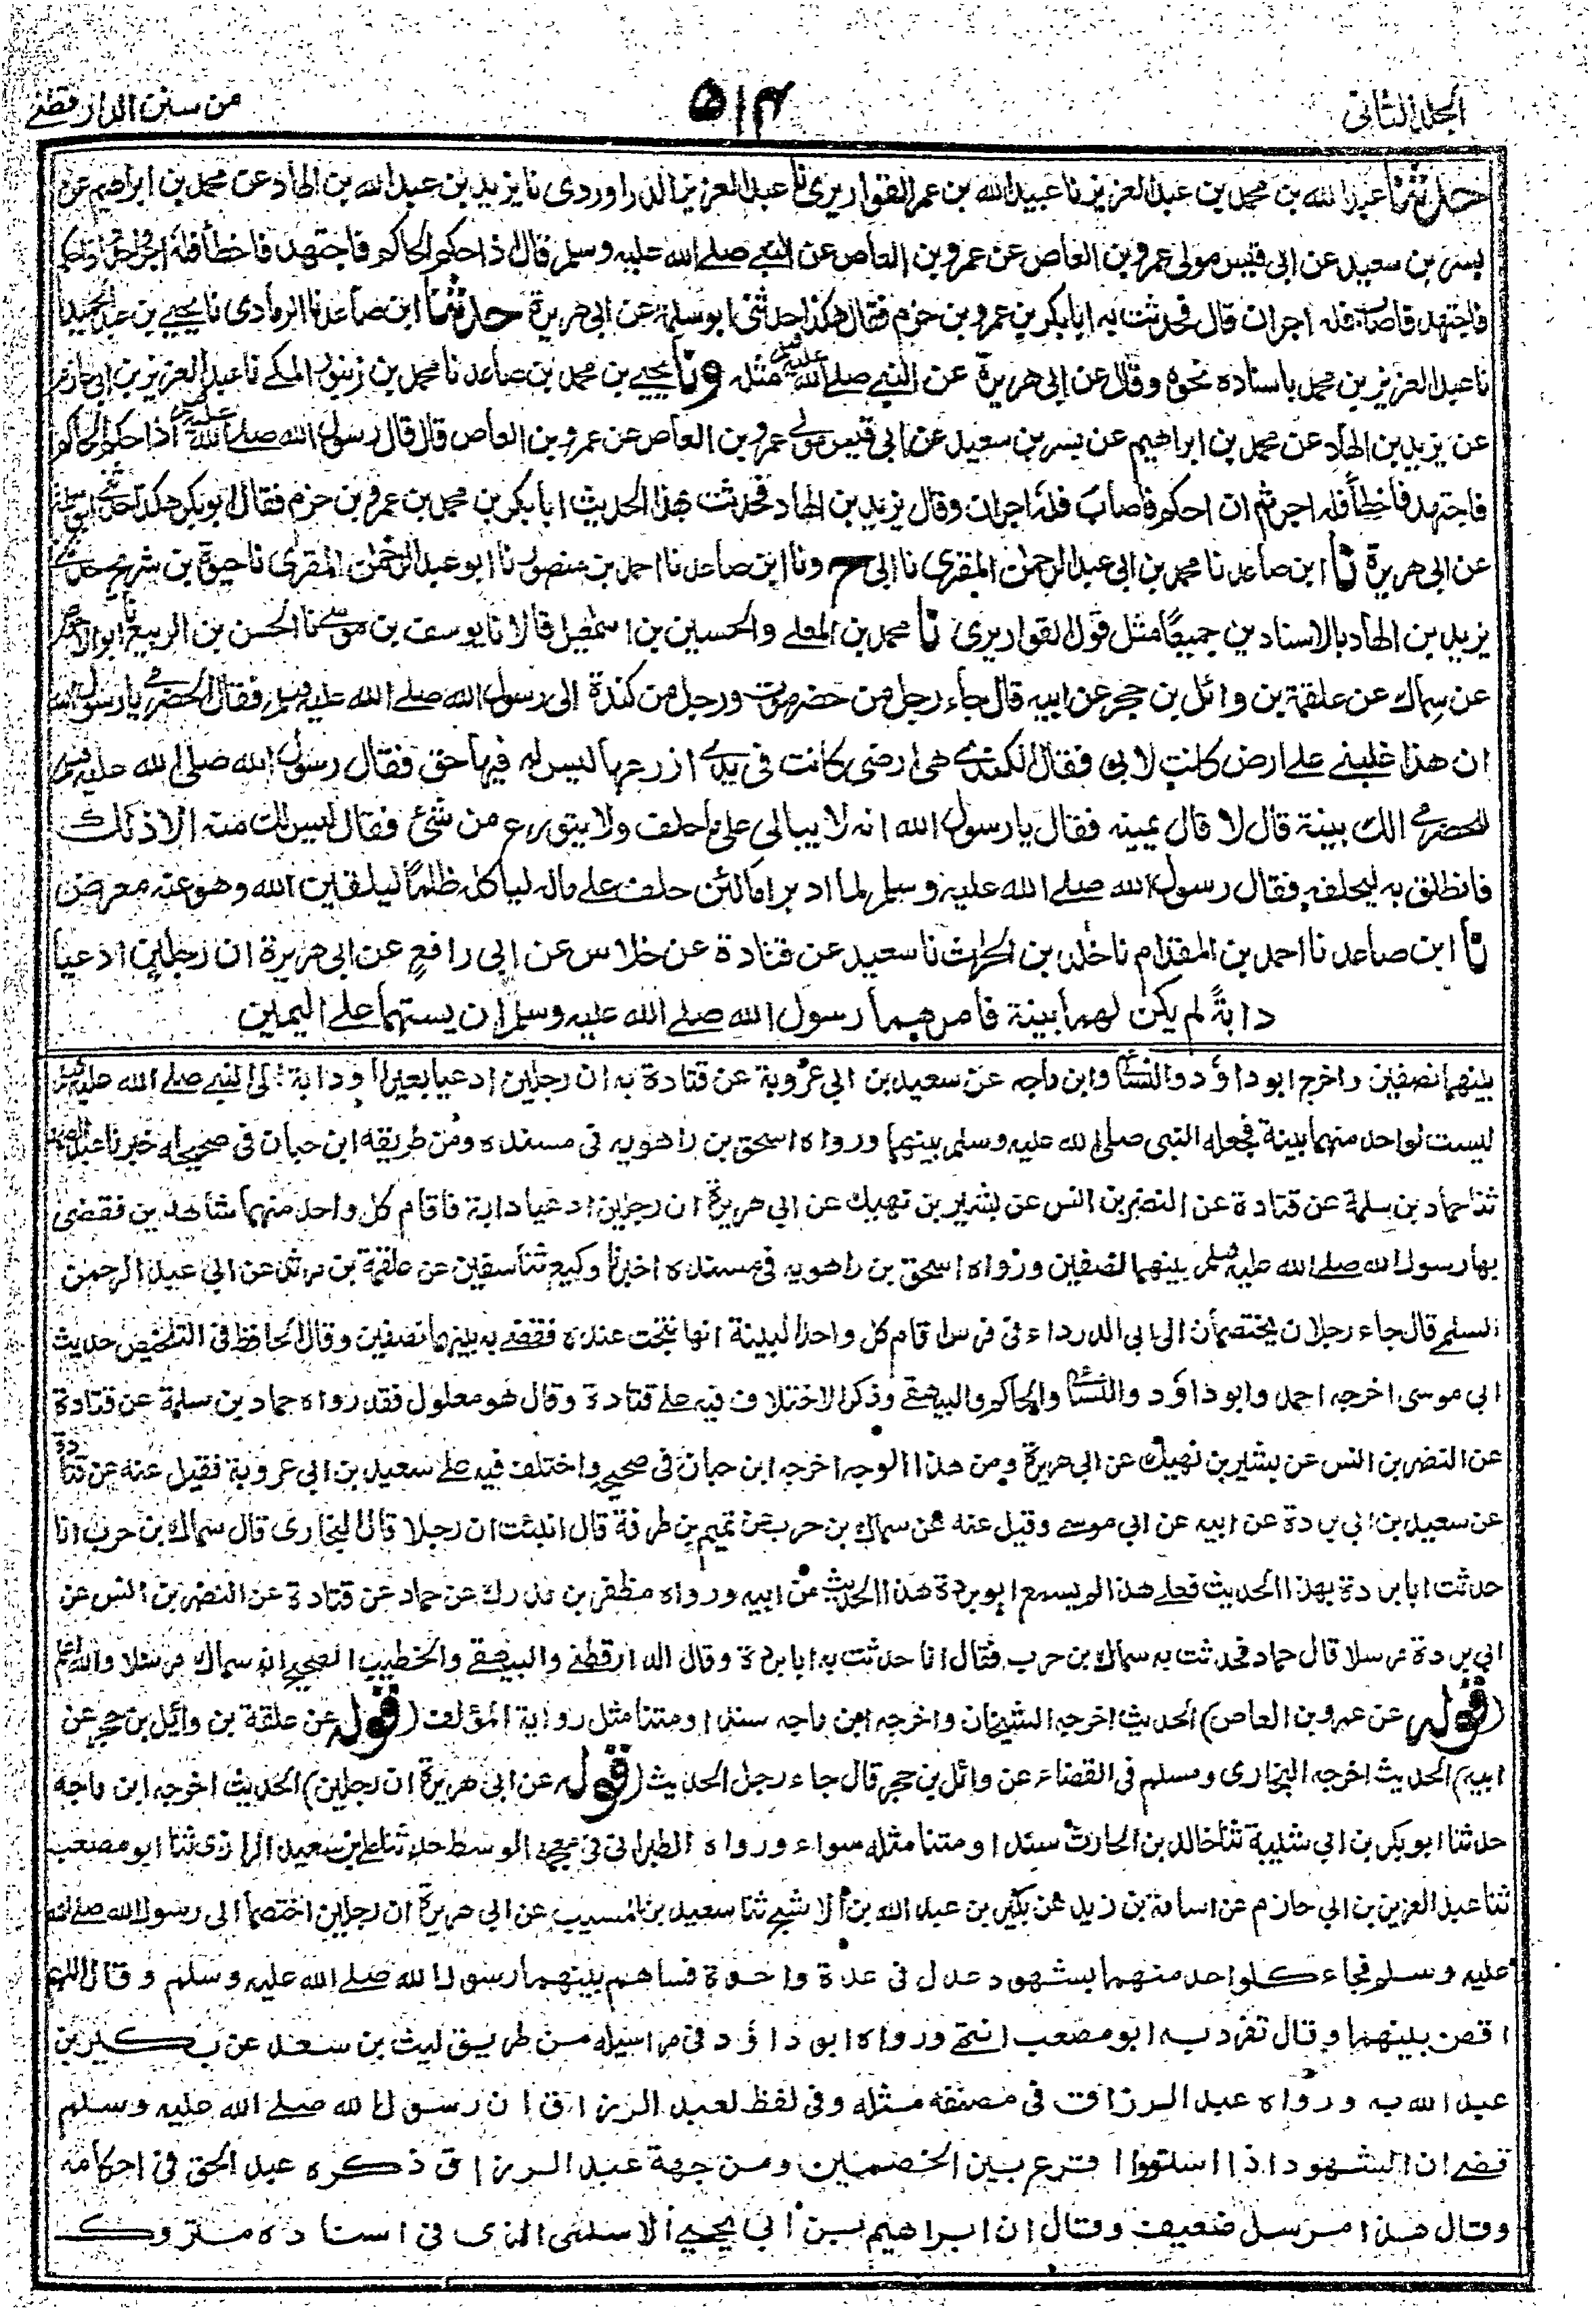 الجلد الثاني
٥١٤
من سنن الدارقطني
حدثنا عبد الله بن محمد بن عبد العزيز نا عبيد الله بن عمر القواريري نا عبد العزيز الدراوردي نا يزيد بن عبد الله بن الهاد عن محمد بن ابراهيم عن
بسر بن سعيد عن ابي قيس مولى عمرو بن العاص عن عمرو بن العاص عن النبي صلى الله عليه وسلم قال اذا حكم الحاكم فاجتهد فاخطأ فله اجر واذا حكم
فاجتهد فاصاب فله اجران قال فحدثت به ابا بكر بن عمرو بن حزم فقال هكذا حدثني ابو سلمة عن ابي هريرة حدثنا ابن صاعد نا الرمادي نا يحيى بن عبد الحميد نا
نا عبد العزيز بن محمد باسناده نحوه وقال عن ابي هريرة عن النبي صلى الله عليه وسلم مثله ونا يحيى بن محمد بن صاعد نا محمد بن زنبور المكي نا عبد العزيز بن ابي حازم
عن يزيد بن الهاد عن محمد بن ابراهيم عن بسر بن سعيد عن ابي قيس مولى عمرو بن العاص عن عمرو بن العاص قال قال رسول الله صلى الله عليه وسلم اذا حكم الحاكم
فاجتهد فاخطأ فله اجر ثم ان احكم فاصاب فله اجران وقال يزيد بن الهاد فحدثت هذا الحديث ابا بكر بن محمد بن عمرو بن حزم فقال ابو بكر هكذا حدثني ابو سلمة
عن ابي هريرة نا ابن صاعد نا محمد بن ابي عبد الرحمن المقري نا ابي ح ونا ابن صاعد نا احمد بن منصور نا ابو عبد الرحمن المقري نا حيوة بن شريح حدثني
يزيد بن الهاد بالاسنادين جميعا مثل قول القواريري نا محمد بن المعلى والحسين بن اسمعيل قالا نا يوسف بن موسى نا الحسن بن الربيع نا ابو الاحوص
عن سماك عن علقمة بن وائل بن حجر عن ابيه قال جاء رجل من حضرموت ورجل من كندة الى رسول الله صلى الله عليه وسلم فقال الحضرمي يا رسول الله
ان هذا غلبني على ارض كانت لابي فقال الكندي هي ارضي كانت في يدي ازرعها ليس له فيها حق فقال رسول الله صلى الله عليه وسلم
للحضرمي الك بينة قال لا قال يمينه فقال يا رسول الله انه لا يبالي على ما حلف ولا يتورع من شئ فقال ليس لك منه الا ذلك
فانطلق به ليحلفه فقال رسول الله صلى الله عليه وسلم لما ادبر اما لئن حلف على ماله لياكله ظلما ليلقين الله وهو عنه معرض
نا ابن صاعد نا احمد بن المقدام نا خلد بن الحرث نا سعيد عن قتادة عن خلاس عن ابي رافع عن ابي هريرة ان رجلين ادعيا
دابة لم يكن لهما بينة فامرهما رسول الله صلى الله عليه وسلم ان يستهما على اليمين
بينهما نصفين واخرج ابو داود والنسائي وابن ماجه عن سعيد بن ابي عروبة عن قتادة به ان رجلين ادعيا بعيرا او دابة الى النبي صلى الله عليه وسلم
ليست لواحد منهما بينة فجعله النبي صلى الله عليه وسلم بينهما ورواه اسحق بن راهويه في مسنده ومن طريقه ابن حبان في صحيحه اخبرنا عبد الصمد
ثنا حماد بن سلمة عن قتادة عن النضر بن انس عن بشير بن نهيك عن ابي هريرة ان رجلين ادعيا دابة فاقام كل واحد منهما شاهدين فقضى
بها رسول الله صلى الله عليه وسلم بينهما نصفين ورواه اسحق بن راهويه في مسنده اخبرنا وكيع ثنا سفيان عن علقمة بن مرثد عن ابي عبد الرحمن
السلمي قال جاء رجلان يختصمان الى ابي الدرداء في فرس اقام كل واحد البينة انها نتجت عنده فقضى به بينهما نصفين وقال الحافظ في التلخيص حديث
ابي موسى اخرجه احمد وابو داود والنسائي والحاكم والبيهقي وذكر الاختلاف فيه على قتادة وقال هو معلول فقد رواه حماد بن سلمة عن قتادة
عن النضر بن انس عن بشير بن نهيك عن ابي هريرة ومن هذا الوجه اخرجه ابن حبان في صحيحه واختلف فيه على سعيد بن ابي عروبة فقيل عنه عن قتادة
عن سعيد بن ابي بردة عن ابيه عن ابي موسى وقيل عنه عن سماك بن حرب عن تميم بن طرفة قال انبئت ان رجلا قال البخاري قال سماك بن حرب انا
حدثت ابا بردة بهذا الحديث فعلى هذا لم يسمع ابو بردة هذا الحديث من ابيه ورواه مظفر بن مدرك عن حماد عن قتادة عن النضر بن انس عن
ابي بردة مرسلا قال حماد فحدثت به سماك بن حرب فقال انا حدثت به ابا بردة وقال الدارقطني والبيهقي والخطيب الصحيح انه سماك مرسلا والله اعلم
(قوله عن عمرو بن العاص) الحديث اخرجه الشيخان واخرجه ابن ماجه سندا ومتنا مثل رواية المؤلف (قوله عن علقمة بن وائل بن حجر عن
ابيه) الحديث اخرجه البخاري ومسلم في القضاء عن وائل بن حجر قال جاء رجل الحديث (قوله عن ابي هريرة ان رجلين) الحديث اخرجه ابن ماجه
حدثنا ابو بكر بن ابي شيبة ثنا خالد بن الحارث سندا ومتنا مثله سواء ورواه الطبراني في معجمه الوسط حدثنا علي بن سعيد الرازي ثنا ابو مصعب
ثنا عبد العزيز بن ابي حازم عن اسامة بن زيد عن بكير بن عبد الله بن الاشج ثنا سعيد بن المسيب عن ابي هريرة ان رجلين اختصما الى رسول الله صلى الله
عليه وسلم فجاء كل واحد منهما بشهود عدل في عدة واحدة فساهم بينهما رسول الله صلى الله عليه وسلم وقال اللهم
اقض بينهما وقال تفرد به ابو مصعب انتهى ورواه ابو داود في مراسيله من طريق ليث بن سعد عن بكير بن
عبد الله به ورواه عبد الرزاق في مصنفه مثله وفي لفظ لعبد الرزاق ان رسول الله صلى الله عليه وسلم
قضى ان الشهود اذا استووا اقرع بين الخصمين ومن جهة عبد الرزاق ذكره عبد الحق في احكامه
وقال هذا مرسل ضعيف وقال ان ابراهيم بن ابي يحيى الاسلمي الذي في اسناده متروك